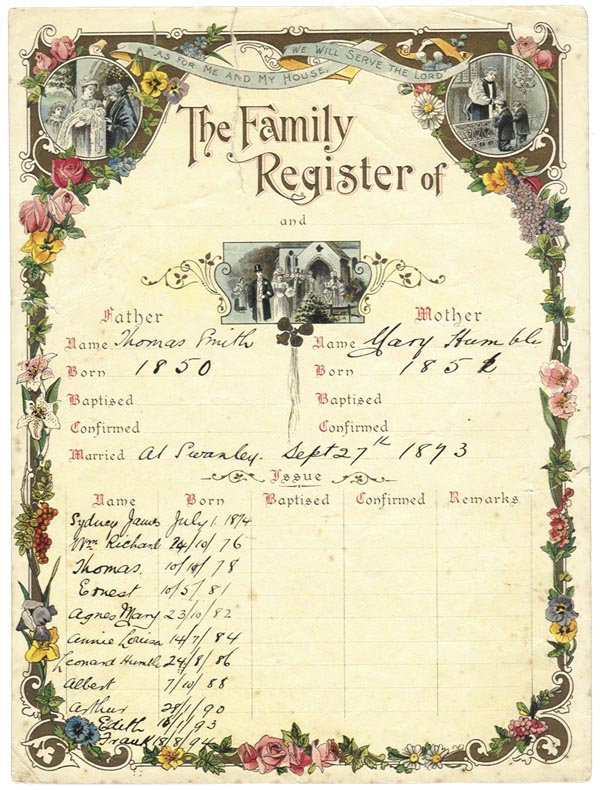 "AS FOR ME AND MY HOUSE, WE WILL SERVE THE LORD"
The Family
Register of
and
Father Mother
Name Thomas Smith Name Mary Humble
Born 1850 Born
Baptised Baptised
Confirmed Confirmed
Married At Swanley. Sept 27th 1873
Issue
Name Born Baptised Confirmed Remarks
Sydney James July 1. 1874
Wm Richard 24/10/76
Thomas.
Ernest 10/5/81
Agnes Mary 23/10/82
Annie Louisa 14/7/84
Leonard Humble 24/8/86
Albert 7/10/88
Arthur 28/1/90
Edith
Frank 18/8/94